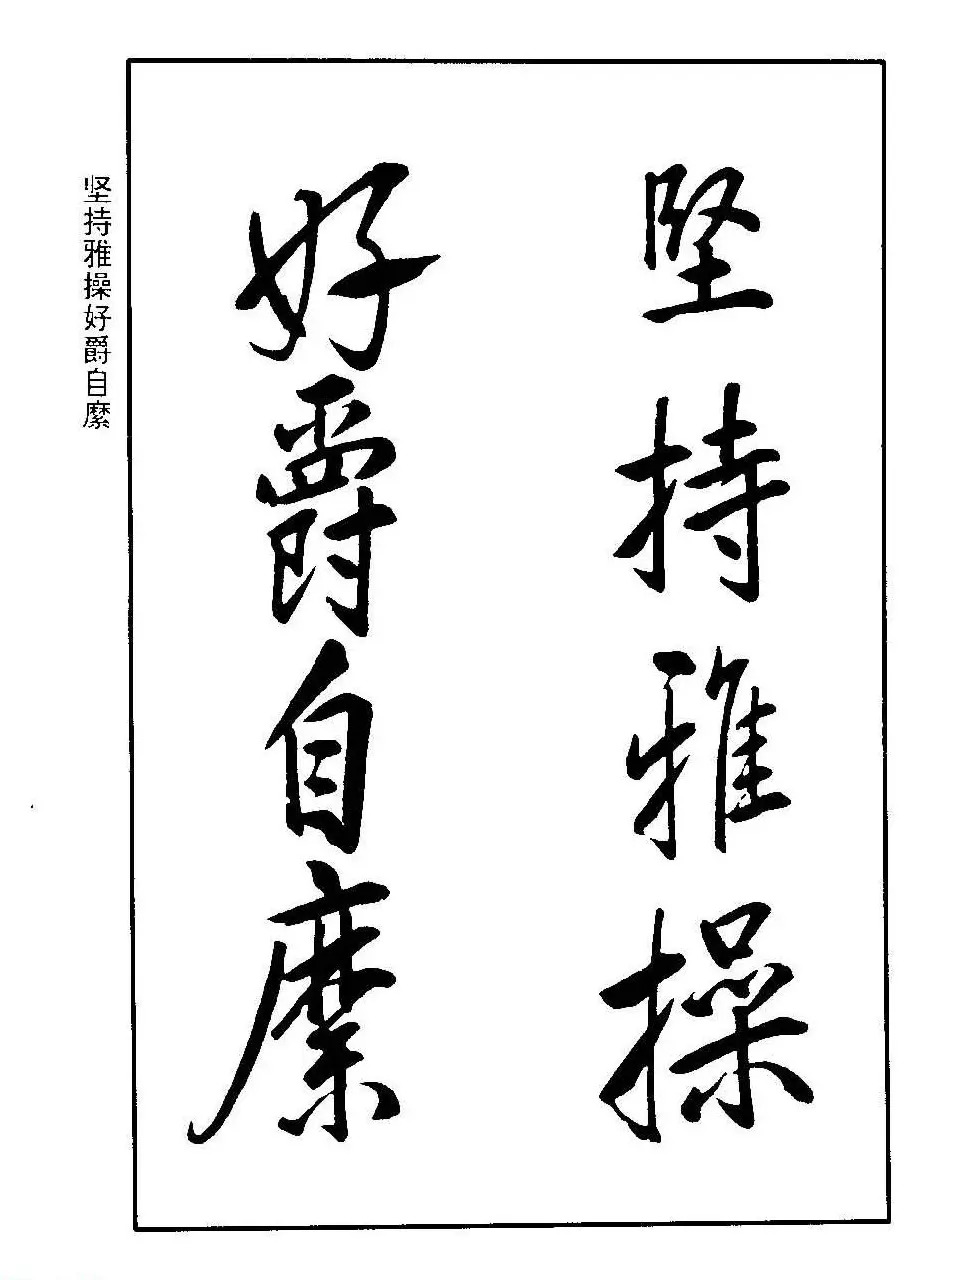 堅持雅操
好爵自縻
坚持雅操好爵自縻